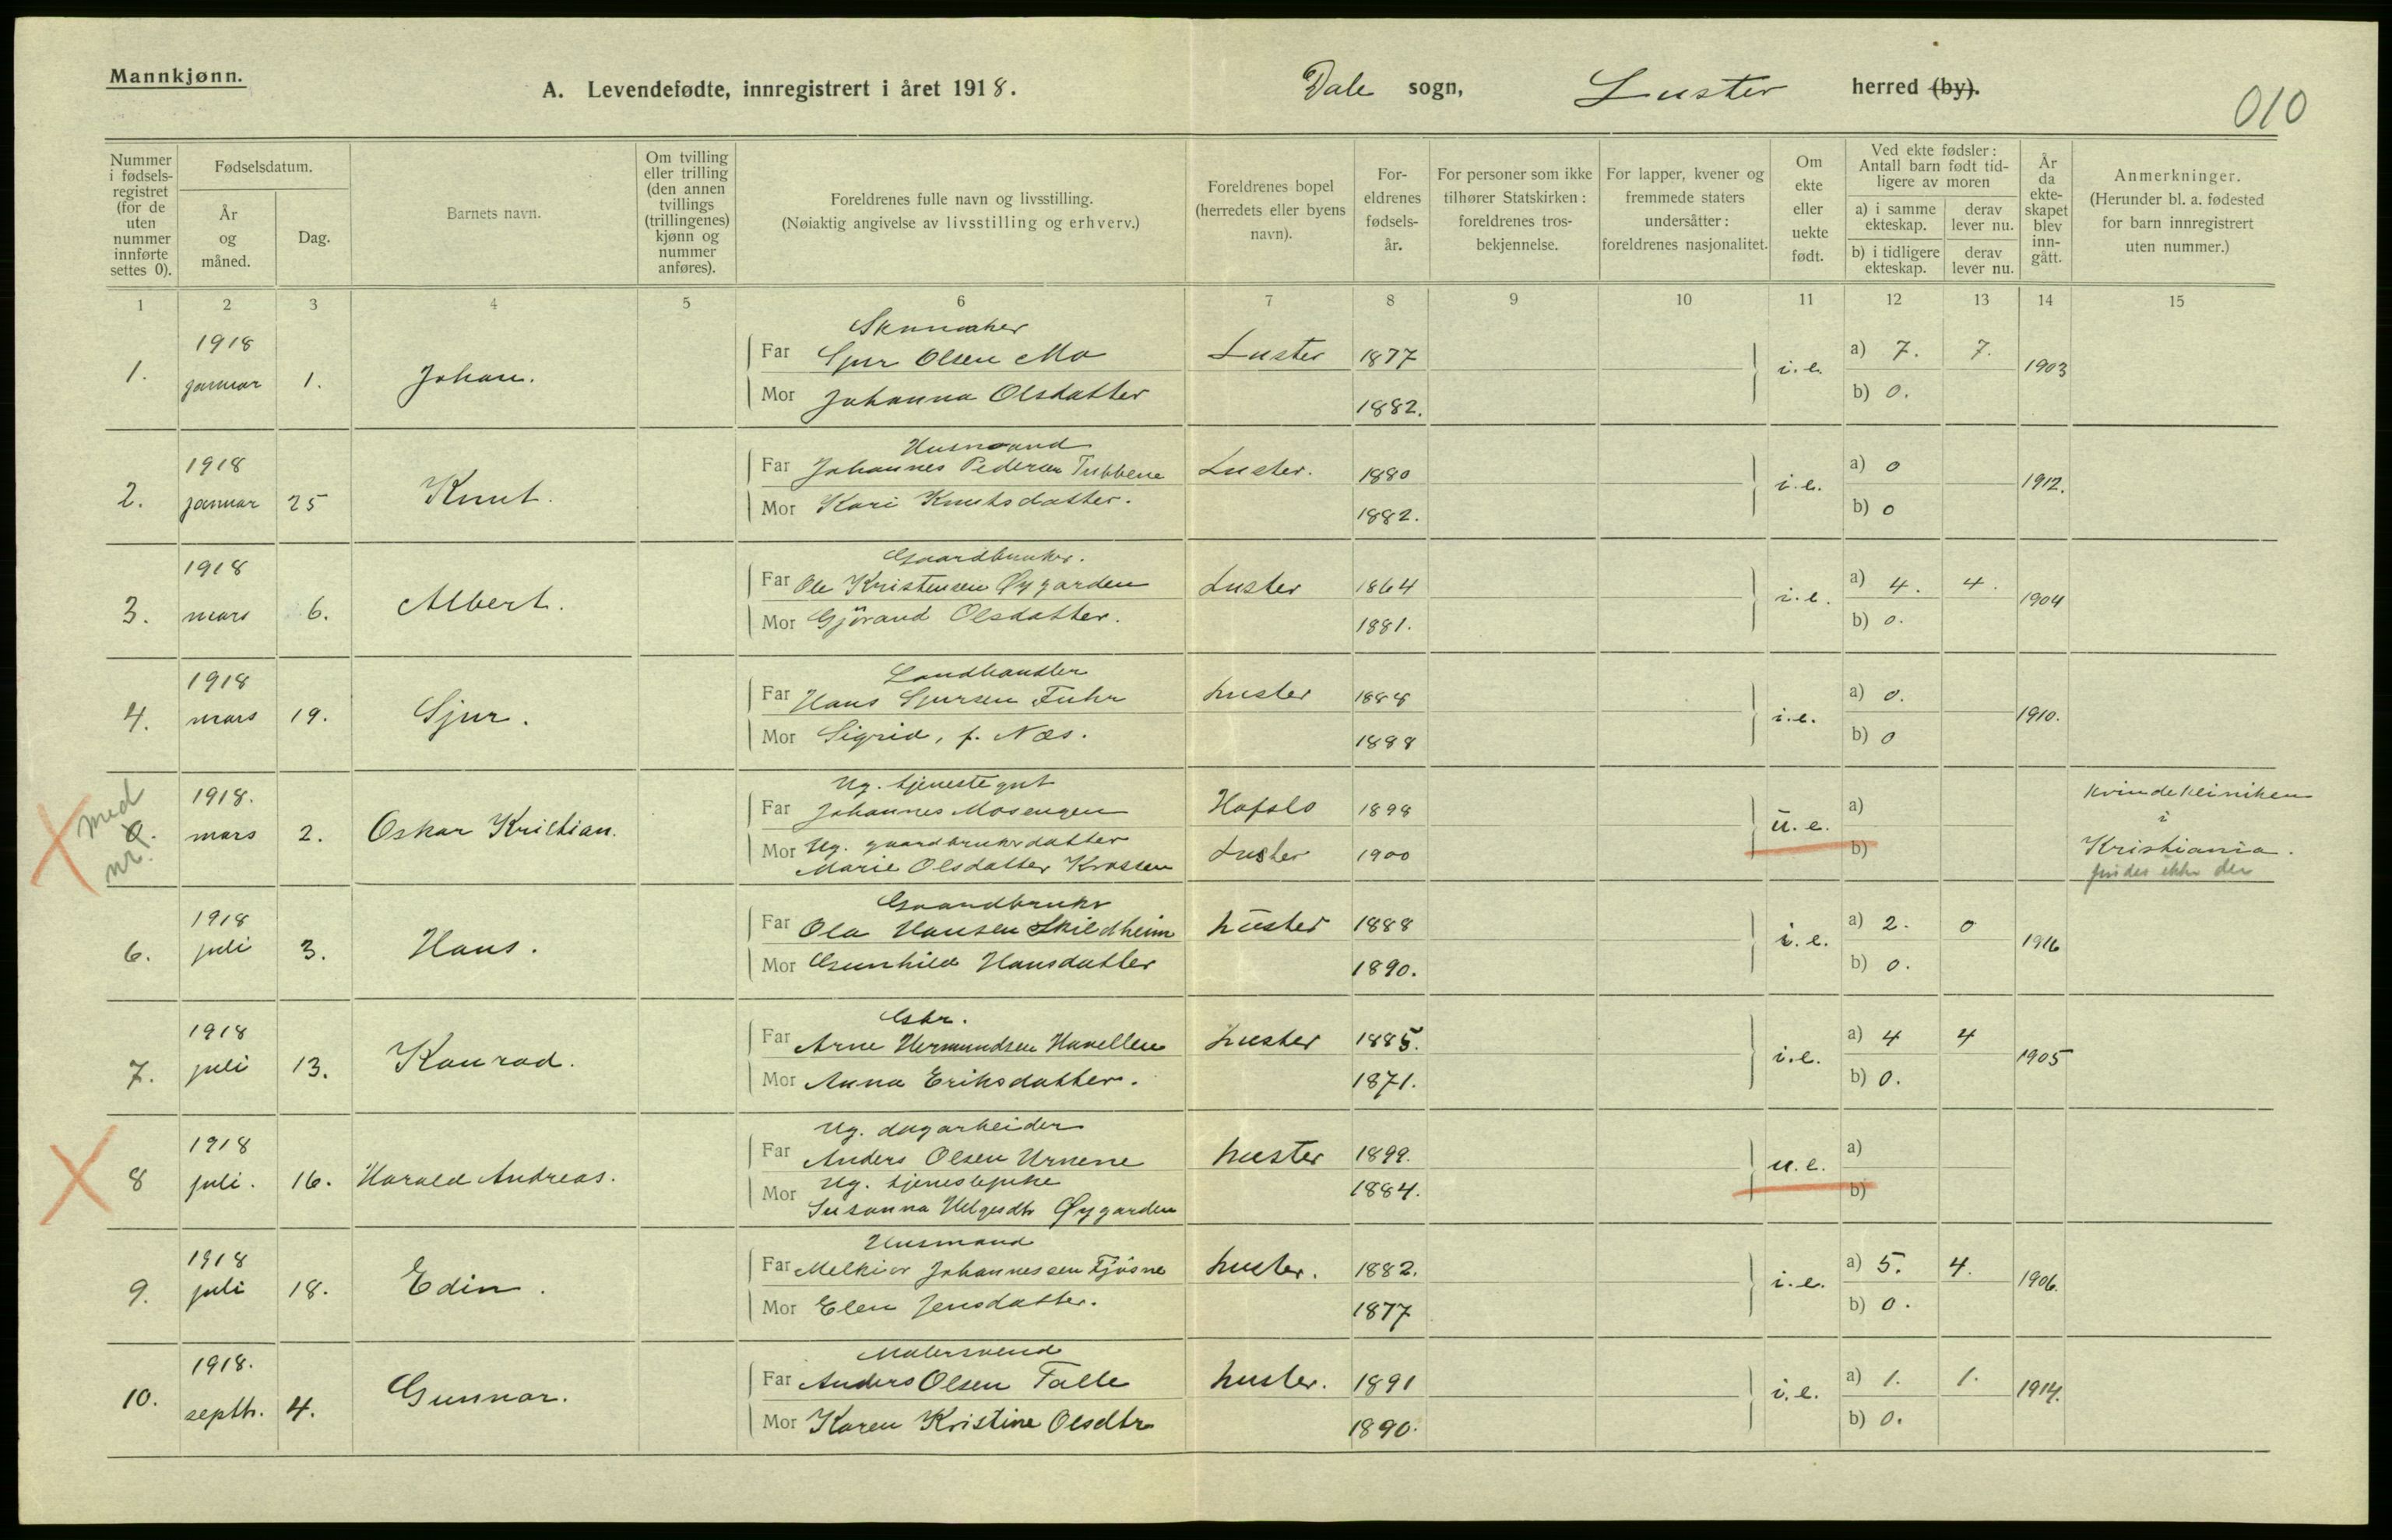 Mannkjønn.
A. Levendefødte, innregistrert i året 1918. Dale sogn, Luster herred (by).
010
Nummer i fødsels-registret (for de uten nummer innførte settes 0).
Fødselsdatum.
År og måned.
Dag.
Barnets navn.
Om tvilling eller trilling (den annen tvillings (trillingenes) kjønn og nummer anføres).
Foreldrenes fulle navn og livsstilling.
(Nøiaktig angivelse av livsstilling og erhverv.)
Foreldrenes bopel (herredets eller byens navn).
For-eldrenes fødsels-år.
For personer som ikke tilhører Statskirken: foreldrenes tros-bekjennelse.
For lapper, kvener og fremmede staters undersåtter: foreldrenes nasjonalitet.
Om ekte eller uekte født.
Ved ekte fødsler: Antall barn født tid-ligere av moren
a) i samme ekteskap.
derav lever nu.
b) i tidligere ekteskap.
derav lever nu.
År da ekte-skapet blev inn-gått.
Anmerkninger.
(Herunder bl. a. fødested for barn innregistrert uten nummer.)
1 2 3 4 5 6 7 8 9 10 11 12 13 14 15
Skomaker
1. 1918 januar 1. Johan. Far Sjur Olsen Mo Luster 1877 i.e. a) 7. 7. 1903
Mor Johanna Olsdatter 1882. b) 0.
Husmand
2. 1918 januar 25 Knut. Far Johannes Pedersen Tubbene Luster. 1880 i.e. a) 0 1912.
Mor Kari Knutsdatter. 1882. b) 0
Gaardbruker.
3. 1918 mars 6. Albert. Far Ole Kristensen Øygarden Luster 1864 i.e. a) 4. 4. 1904
Mor Gjörand Olsdatter. 1881. b) 0.
Landhandler
4. 1918 mars 19. Sjur. Far Hans Sjursen Fuhr Luster 1888 i.e. a) 0. 1910.
Mor Sigrid, f. Næs. 1888 b) 0
med nr.
Ug. tjenestegut
0. 1918. mars 2. Oskar Kristian. Far Johannes Mosengen Hafslo 1898 u.e. a)
Ug. gaardbrukerdatter
Mor Marie Olsdatter Krossen Luster 1900 b)
Kvindekliniken
i
Kristiania.
findes ikke der
Gaardbruker
6. 1918 juli 3. Hans. Far Ola Hansen Skildheim Luster 1888 i.e. a) 2. 0 1916
Mor Gunhild Hansdatter 1890. b) 0.
Gbr.
7. 1918 juli 13. Konrad. Far Arne Hermundsen Havellen Luster 1885. i.e. a) 4 4 1905
Mor Anna Eriksdatter. 1871. b) 0.
Ug. dagarbeider
8 1918 juli. 16. Harald Andreas. Far Anders Olsen Urnene Luster 1899. u.e. a)
Ug. tjenestepike
Mor Susanna Helgesdtr Øygarden 1884. b)
Husmand
9. 1918 juli 18. Edin. Far Melkior Johannessen Fjøsne Luster. 1882. i.e. a) 5. 4. 1906.
Mor Elen Jensdatter. 1877 b) 0.
Malersvend
10. 1918. septb. 4. Gunnar. Far Anders Olsen Talle Luster. 1891 i.e. a) 1. 1. 1914.
Mor Karen Kristine Olsdtr 1890. b) 0.